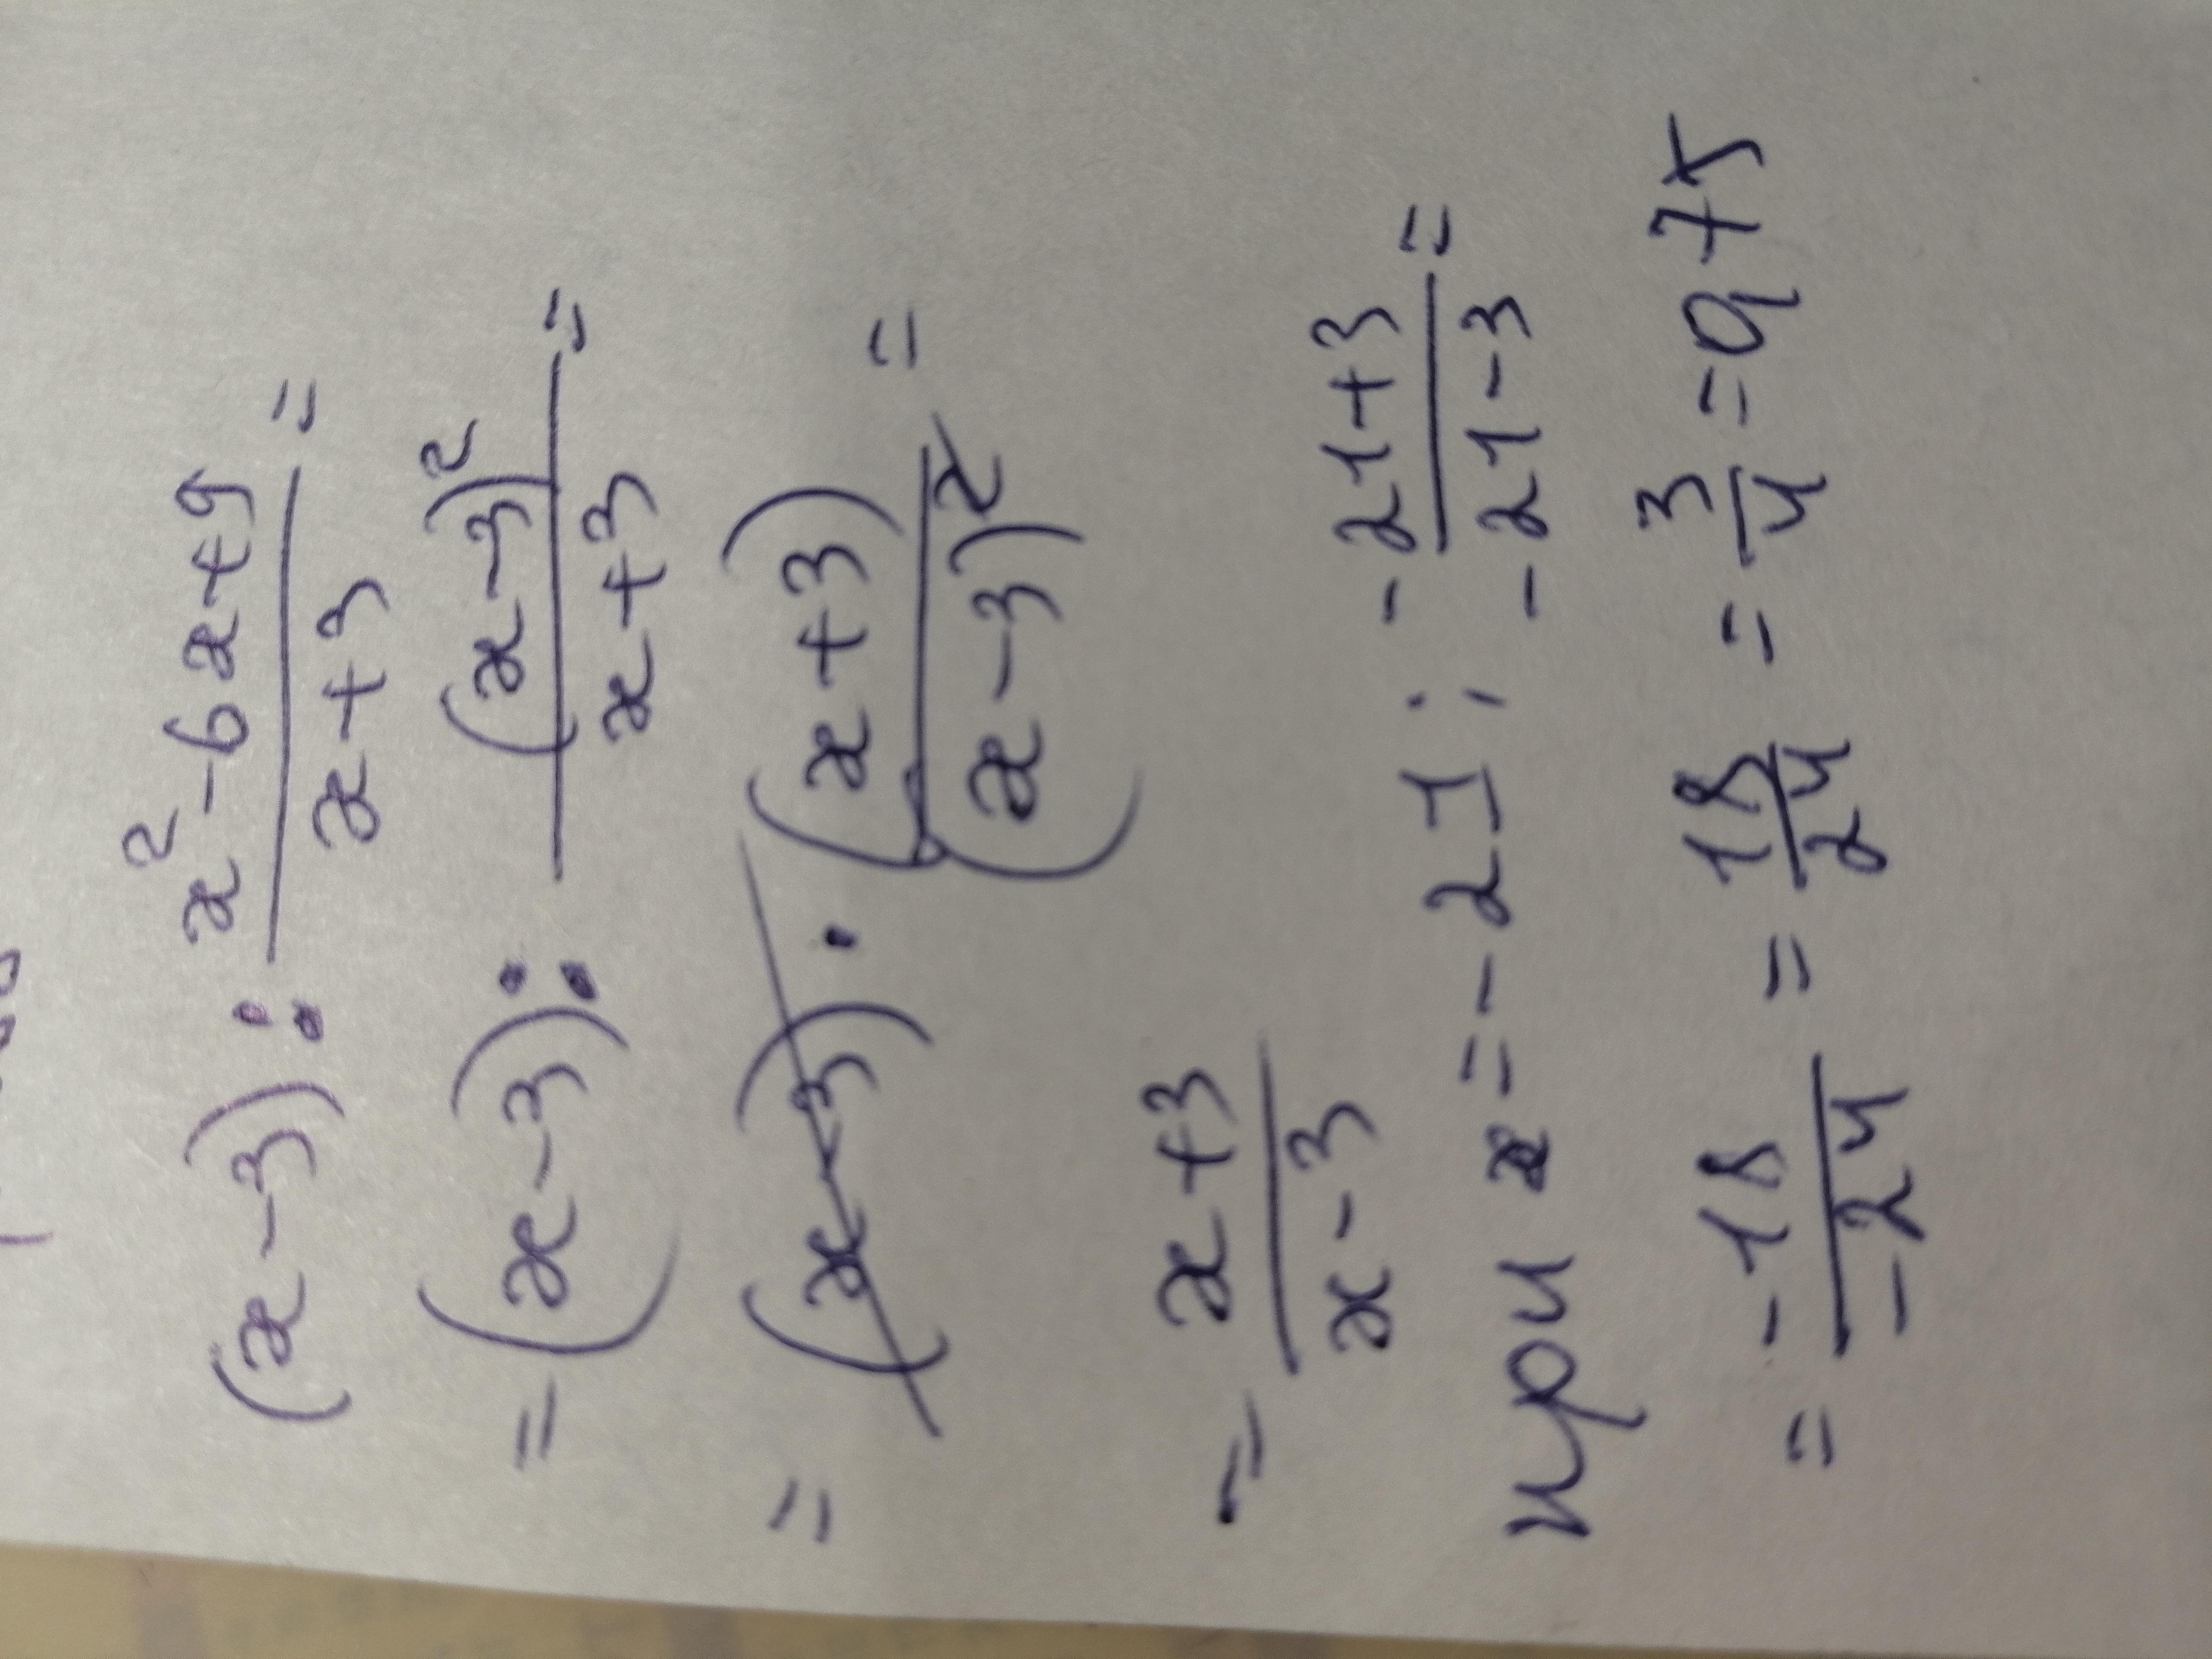 (x-3) : \frac{x^2-6x+9}{x+3} =
= (x-3) : \frac{(x-3)^2}{x+3} =
= (x-3) · \frac{(x+3)}{(x-3)^2} =
= \frac{x+3}{x-3}
при x = -21; \frac{-21+3}{-21-3} =
= \frac{-18}{-24} = \frac{18}{24} = \frac{3}{4} = 0,75